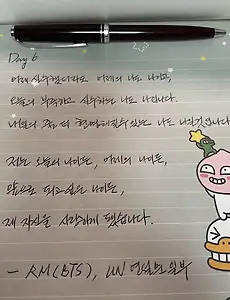 Day 6
어제 실수했더라도 어제의 나도 나이고,
오늘의 부족하고 실수하는 나도 나입니다.
내일의 좀 더 현명해질 수 있는 나도 나일 것입니다.
저는 오늘의 나이든, 어제의 나이든,
앞으로 되고 싶은 나이든,
제 자신을 사랑하게 됐습니다.
- RM(BTS), UN 연설문 일부